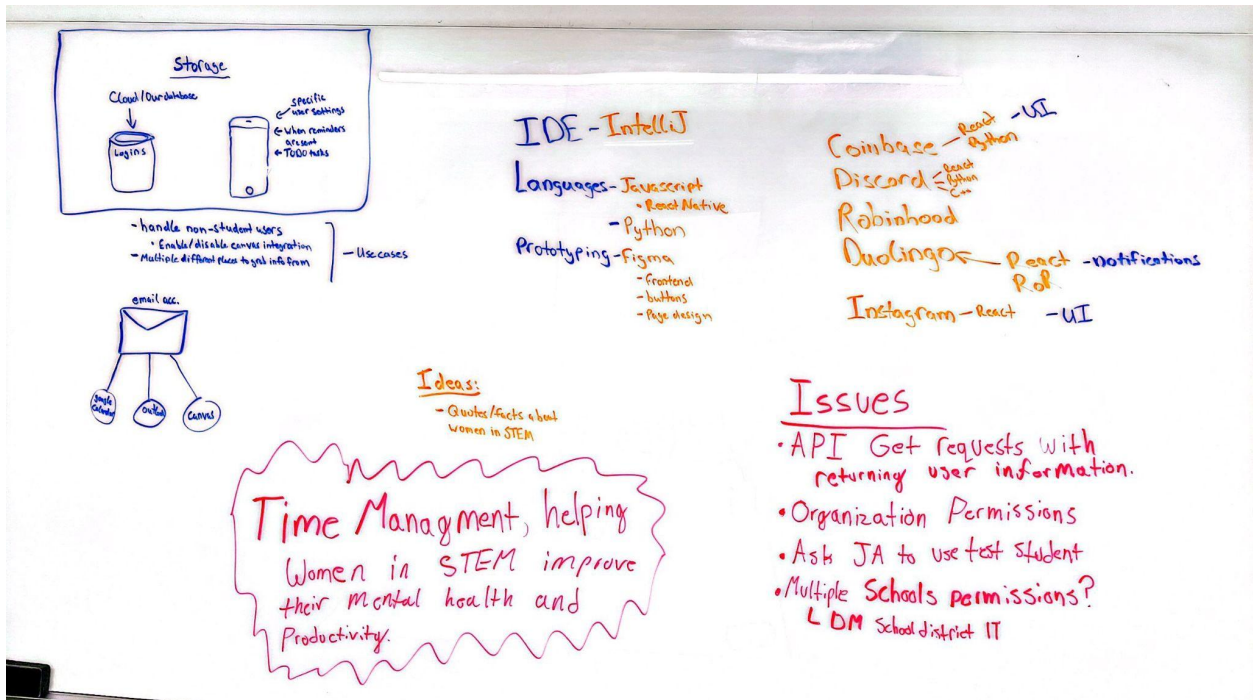 Storage
Cloud/Our database
Logins
specific
user settings
when reminders
are sent
TODO tasks
- handle non-student users
• Enable/disable canvas integration
- Multiple different places to grab info from
- Use cases
email acc.
google
calendar
outlook
canvas
IDE - IntelliJ
Languages - Javascript
• React Native
- Python
Prototyping - Figma
- frontend
- buttons
- Page design
Coinbase - React - UI
Python
Discord - React
- Python
- C++
Robinhood
DuoLingo React - notifications
RoR
Instagram - React - UI
Ideas:
- Quotes/facts about
women in STEM
Time Managment, helping
Women in STEM improve
their mental health and
Productivity.
Issues
• API Get requests with
returning user information.
• Organization Permissions
• Ask JA to use test student
• Multiple Schools permissions?
DM School district IT